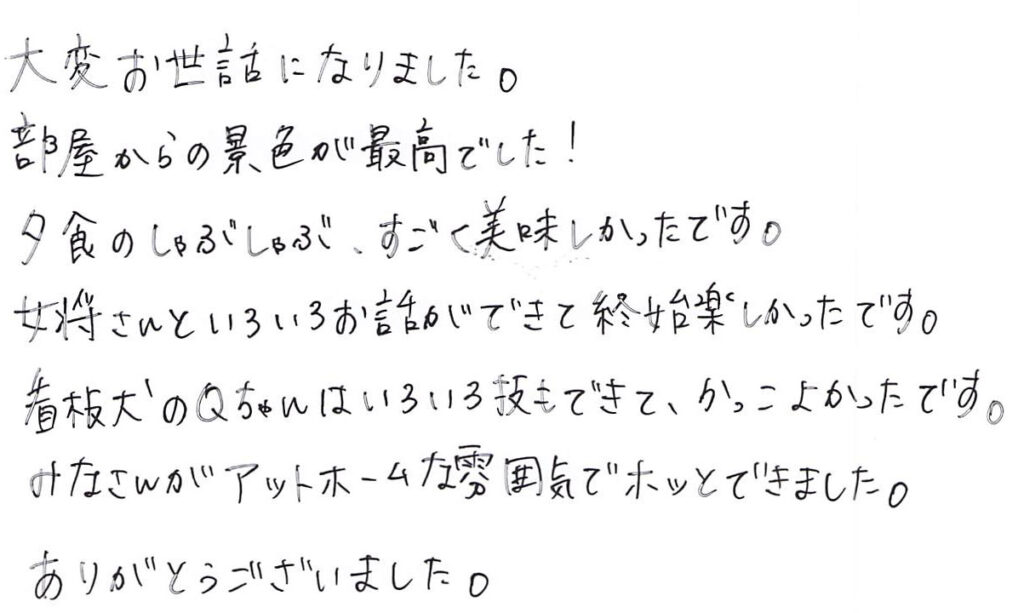 大変お世話になりました。
部屋からの景色が最高でした！
夕食のしゅぶしゅぶ、すごく美味しかったです。
女将さんといろいろお話ができて終始楽しかったです。
看板犬のQちゃんはいろいろ技もできて、かっこよかったです。
みなさんがアットホームな雰囲気でホッとできました。
ありがとうございました。